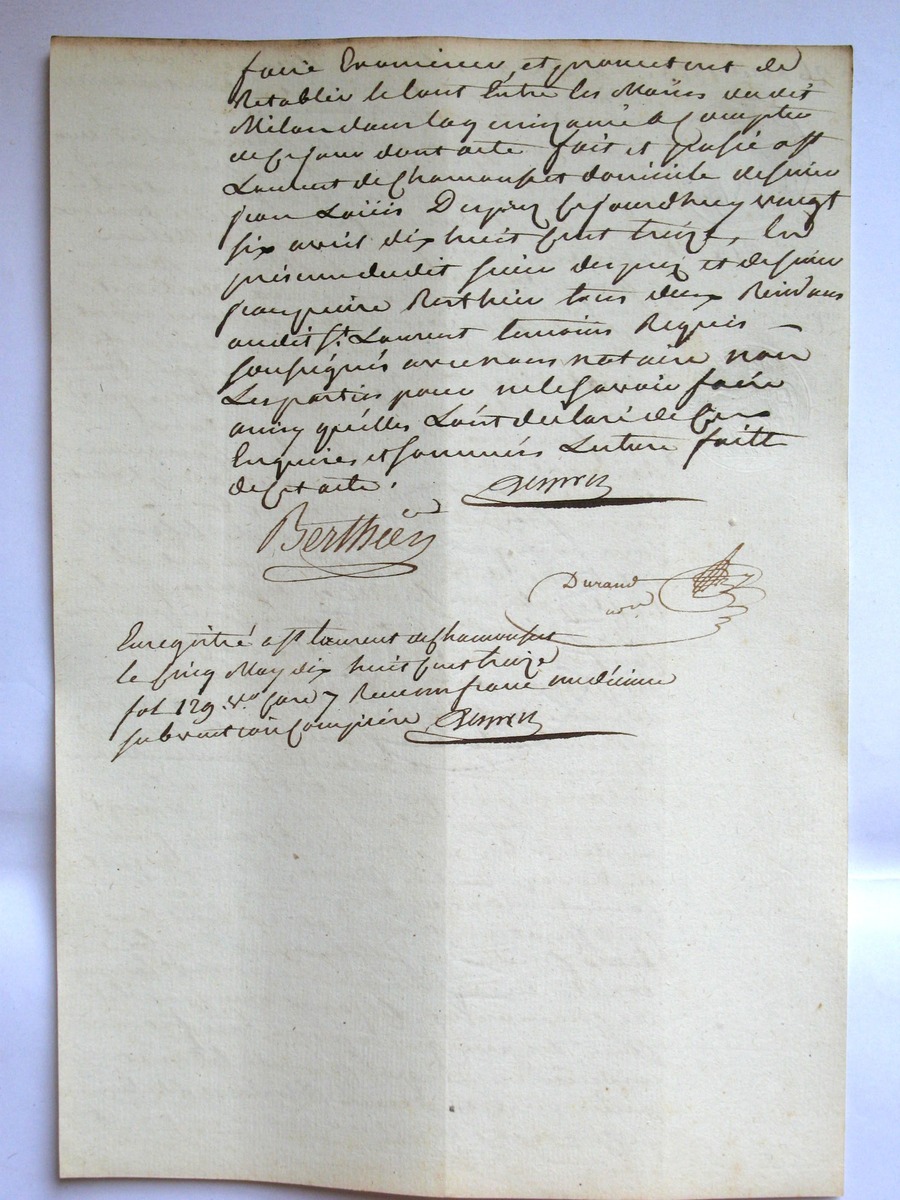 faire Examiner, et promettent de
Retablir le tout Entre les Mains du dit
Milan dans la quinzaine a Compter
de Ce jour dont acte fait et passé a St
Laurent de Chamousset domicile de sieur
jean Louis Desprez Cejourdhuy vingt
six avril dix huit Cent treize, En
présence dudit sieur desprez et de sieur
jean pierre Berthier tous deux Residans
audit St Laurent temoins Requis
soussignés avec nous notaire non
Les parties pour ne le savoir faire
ainsy qu'elles L'ont declaré de Ce
Enquises et sommées Lecture faitte
de Cet acte.
Desprez
Berthier
Durand
nore
Enregistré a St Laurent de Chamousset
le Cinq May dix huit Cent treize
fol 129 vo Case 7 Recu un franc un décime
subvention Comprise Desprez